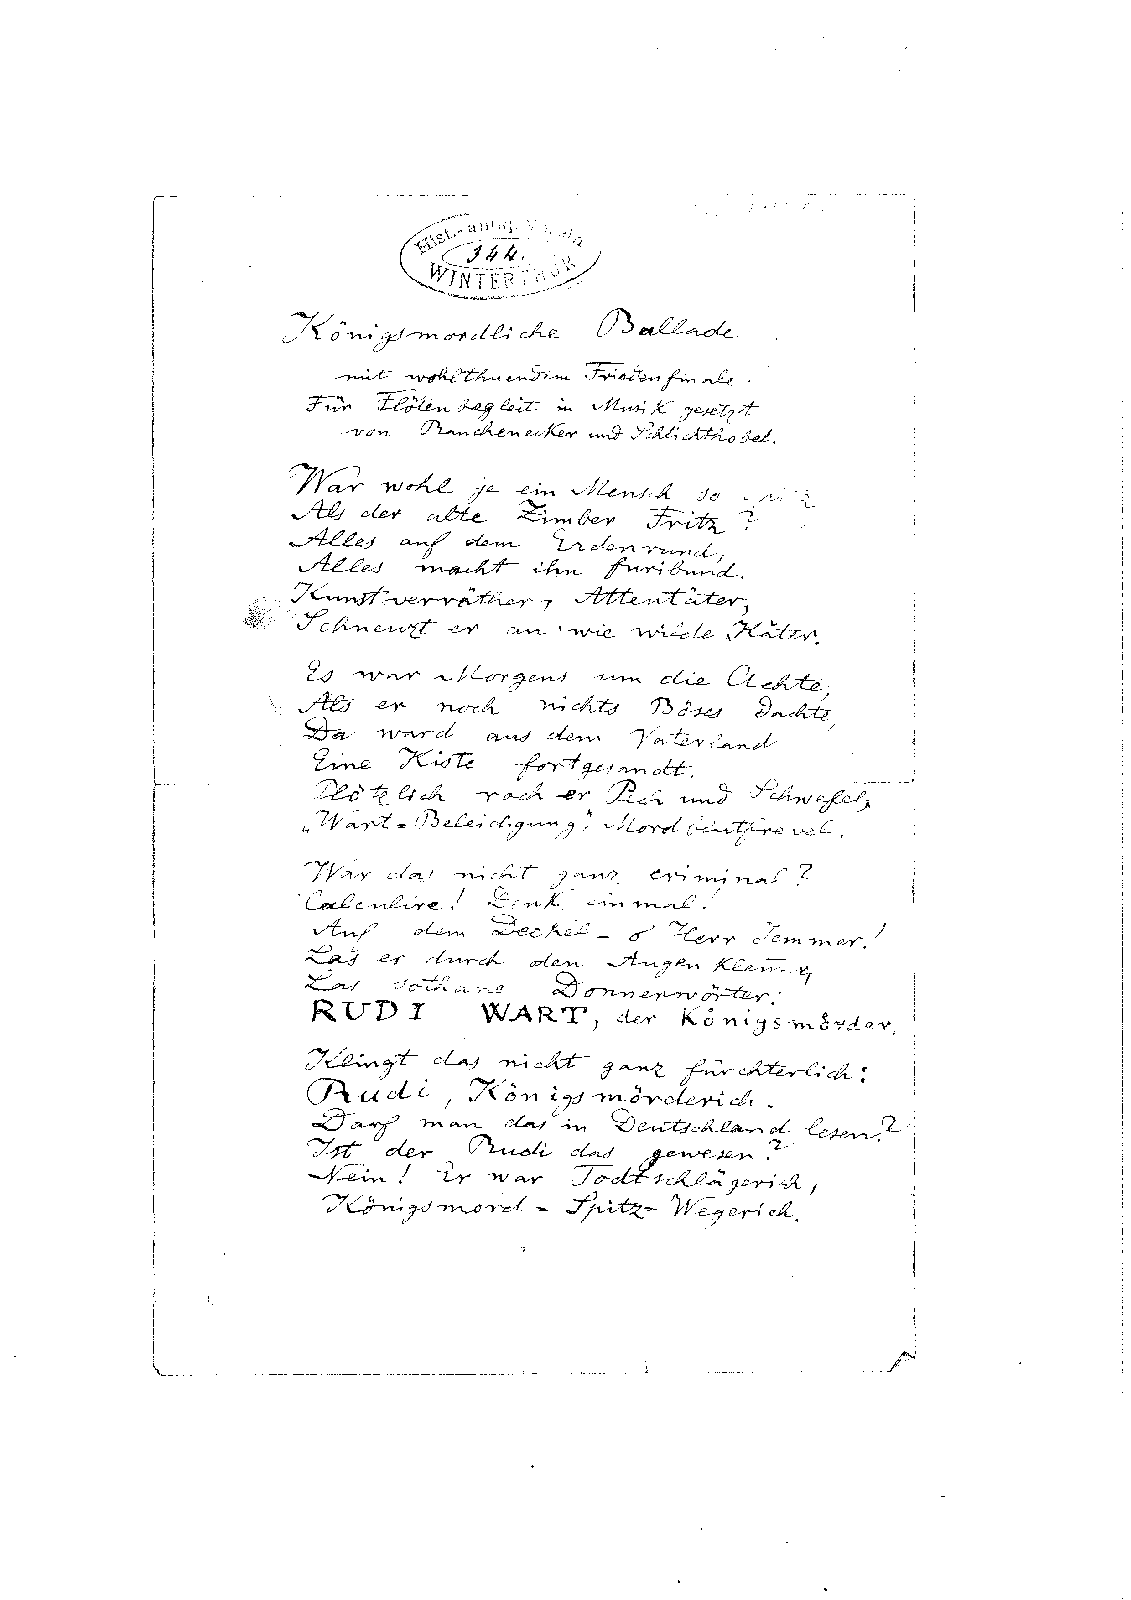 344.
WINTERTHUR
Königsmordliche Ballade
mit wohlthuendem Friedenfinale.
Für Flötenbegleit. in Musik gesetzt
von Rauchenecker und Schlichthobel.
War wohl je ein Mensch so
Als der alte Zimber Fritz?
Alles auf dem Erdenrund,
Alles macht ihn furibund.
Kunstverräther, Attentäter,
Schneuzt er an wie wilde Käter.
Es war Morgens um die Achte,
Als er noch nichts Böses dachte,
Da ward aus dem Vaterland
Eine Kiste fortgesandt.
Plötzlich roch er Pech und Schwefel,
„Wart-Beleidigung", Mord
War das nicht ganz criminal?
Calculire! Denk einmal!
Auf dem Deckel - o Herr Jemmer!
Las er durch den Augenklemmer,
Las sothane Donnerwörter:
RUDI WART, der Königsmörder.
Klingt das nicht ganz fürchterlich:
Rudi, Königsmörderich.
Darf man das in Deutschland lesen?
Ist der Rudi das gewesen?
Nein! Er war Todtschlägerich,
Königsmord-Spitz-Wegerich.